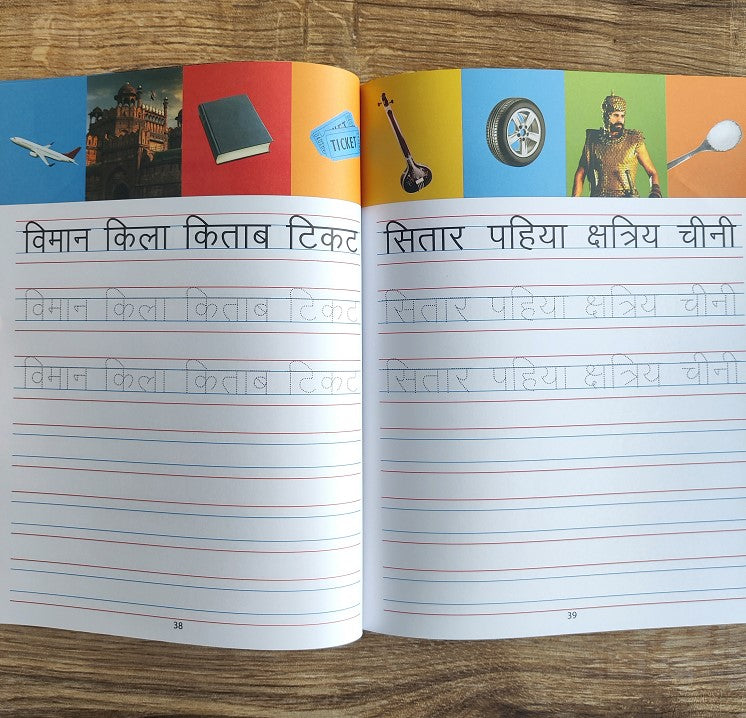 TICKET
विमान किला किताब टिकट
विमान किला किताब टिकट
विमान किला किताब टिकट
38
सितार पहिया क्षत्रिय चीनी
सितार पहिया क्षत्रिय चीनी
सितार पहिया क्षत्रिय चीनी
39